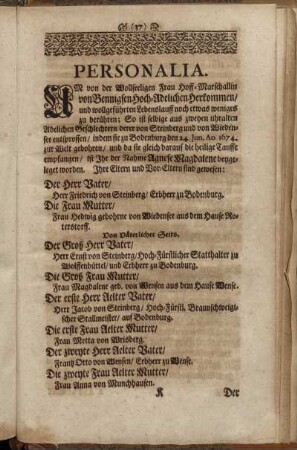 (17)
PERSONALIA.
UM von der Wollseeligen Frau Hoff-Marschallin
von Bennigsen Hoch-Adelichen Herkommen/
und wollgeführten Lebenslauff noch etwas weniges
zu berühren; So ist selbige aus zweyen uhralten
Adelichen Geschlechtern derer von Steinberg und von Wiedenser
entsprossen/ indem sie zu Bodenburg den 24. Jan. Ao 1674.
zur Welt gebohren/ und da sie gleich darauf die heilige Tauffe
empfangen/ ist Ihr der Nahme Agnese Magdalene beyge-
leget worden. Ihre Eltern und Vor-Eltern sind gewesen:
Der Herr Vater/
Herr Friedrich von Steinberg/ Erbherr zu Bodenburg.
Die Frau Mutter/
Frau Hedwig gebohrne von Wiedenser aus dem Hause Ro-
terstorff.
Von Väterlicher Seite.
Der Groß Herr Vater/
Herr Ernst von Steinberg/ Hoch-Fürstlicher Statthalter zu
Wolffenbüttel/ und Erbherr zu Bodenburg.
Die Groß Frau Mutter/
Frau Magdalene geb. von Wensen aus dem Hause Wense.
Der erste Herr Aelter Vater/
Herr Jacob von Steinberg/ Hoch-Fürstl. Braunschweigi-
scher Stallmeister/ auf Bodenburg.
Die erste Frau Aelter Mutter/
Frau Metta von Weisberg.
Der zweyte Herr Aelter Vater/
Frantz Otto von Wensen/ Erbherr zu Wense.
Die zweyte Frau Aelter Mutter/
Frau Anna von Munchhausen.
K Der